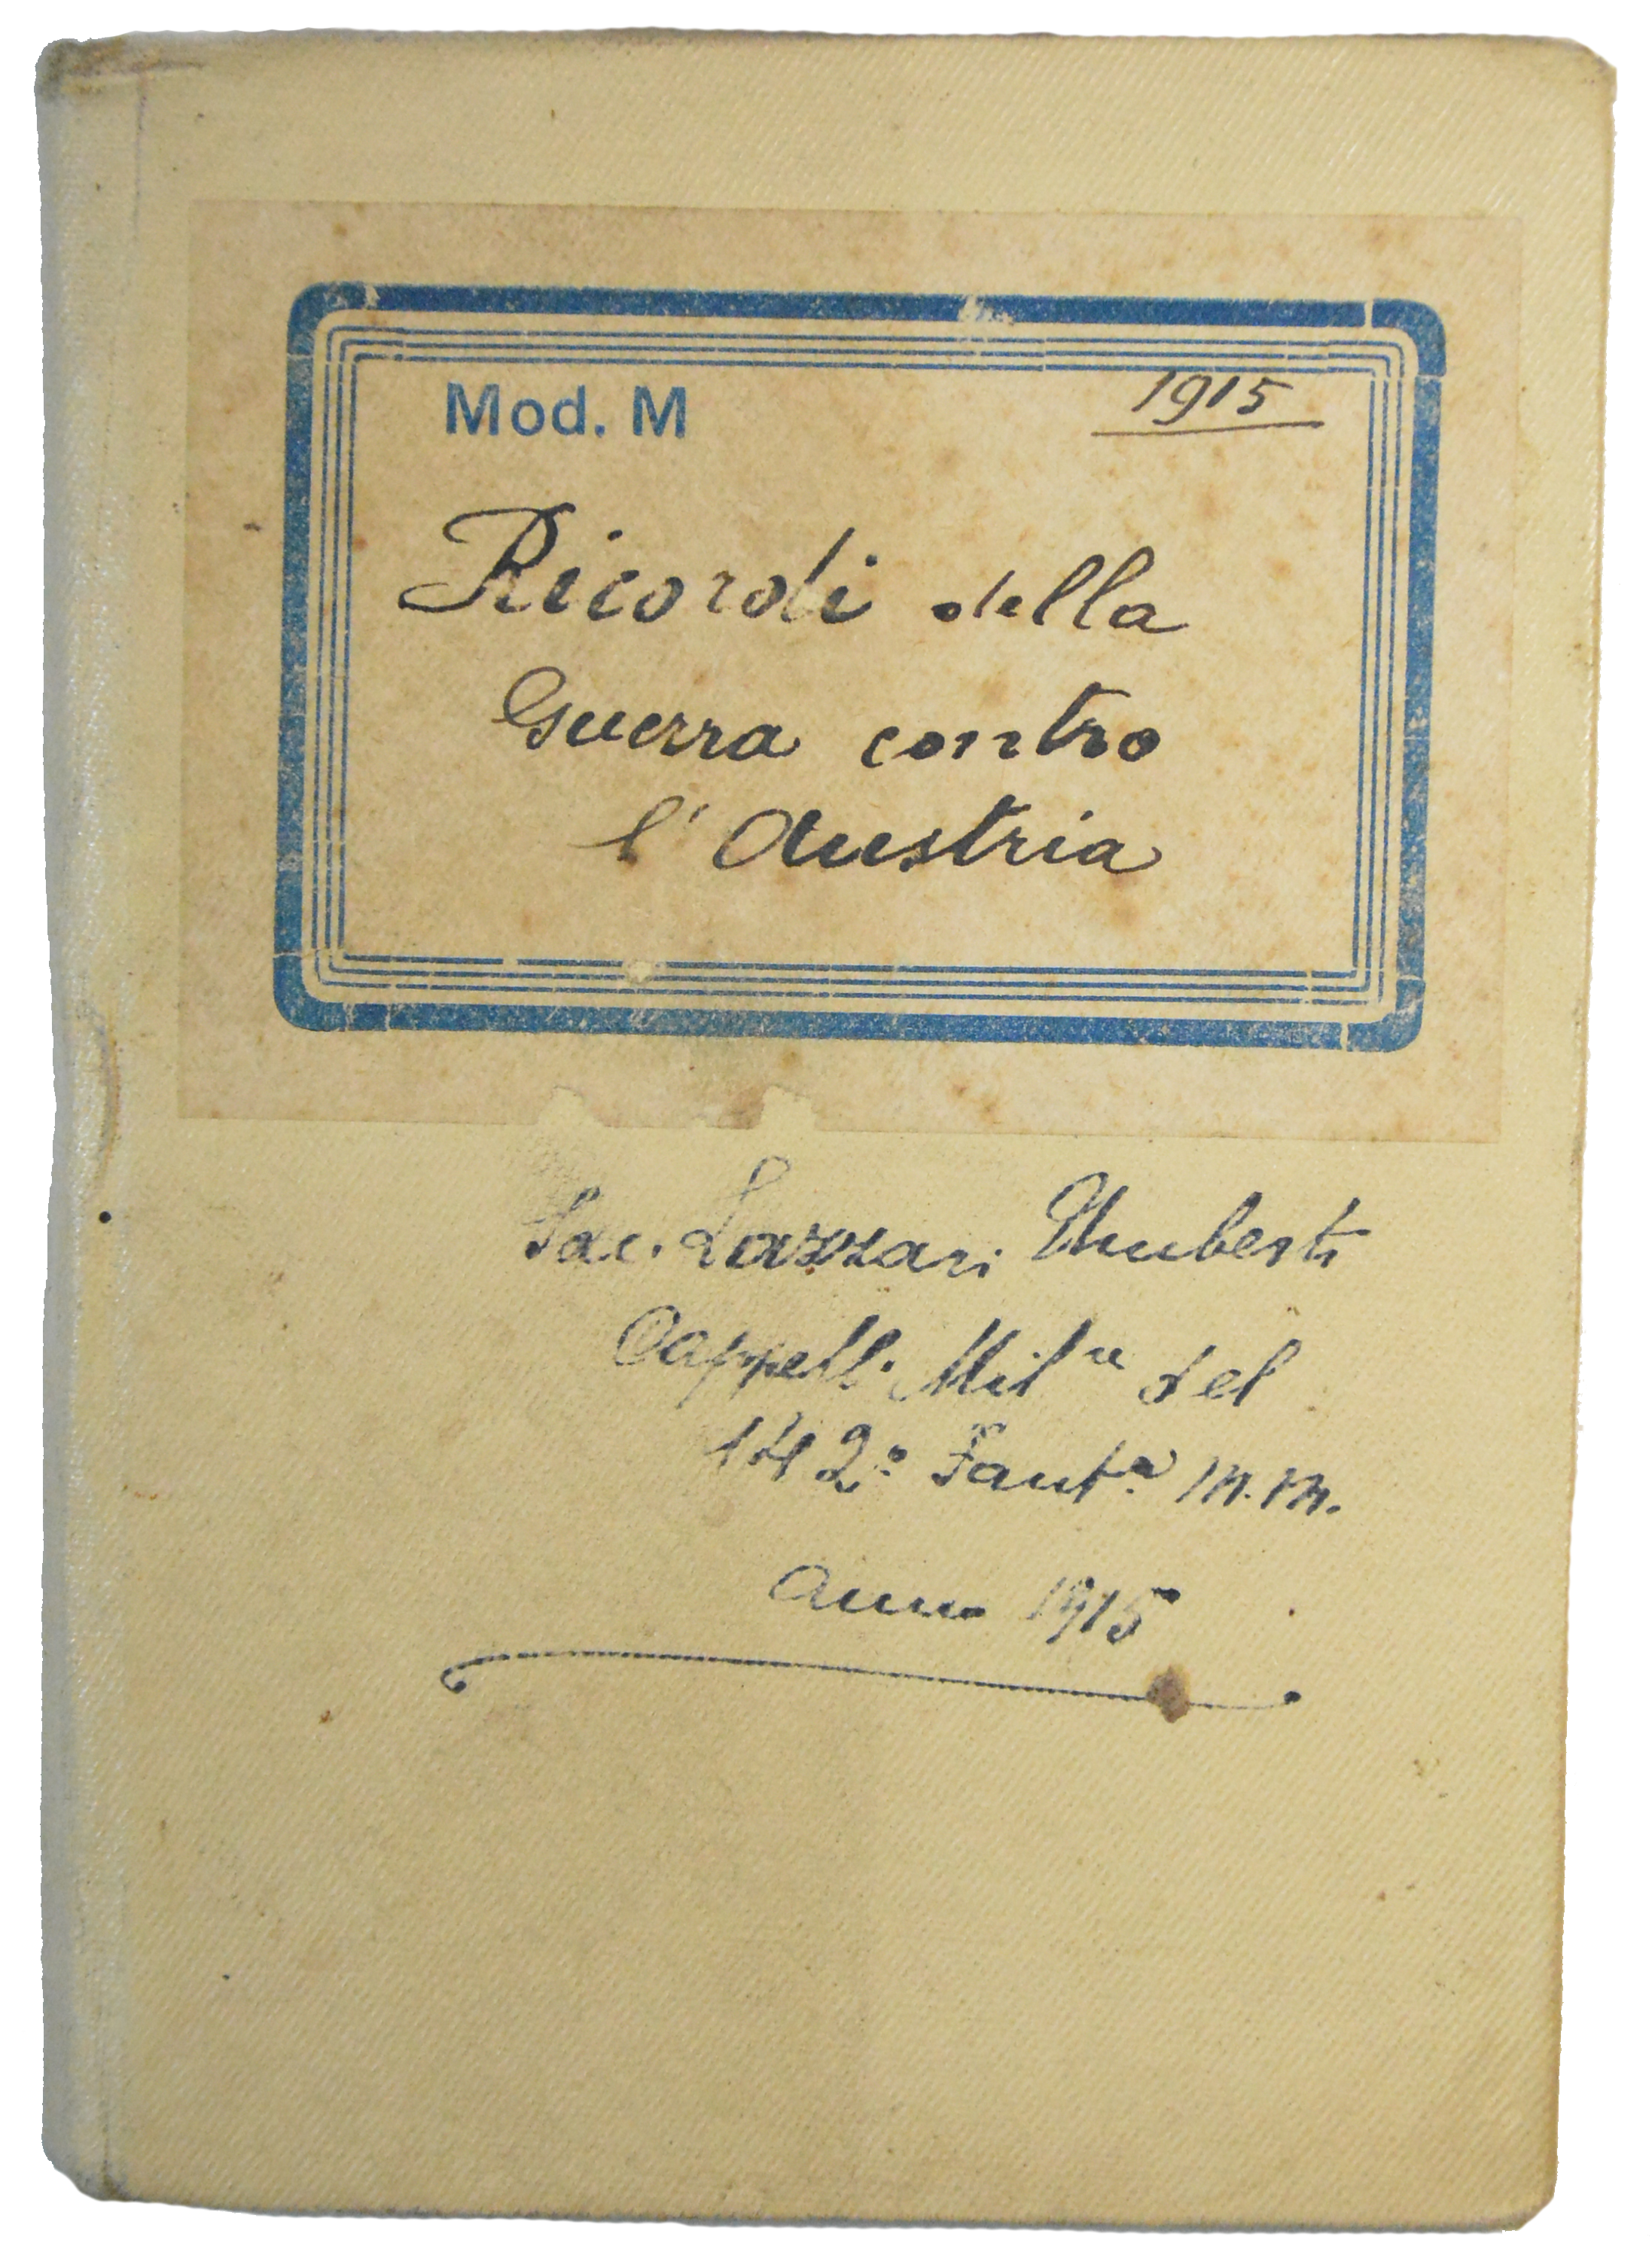 Mod. M 1915
Ricordi della
Guerra contro
l'Austria
Sac. Lazzari Umberto
Cappell. Mil.re del
142º Fant.a M.M.
Anno 1915